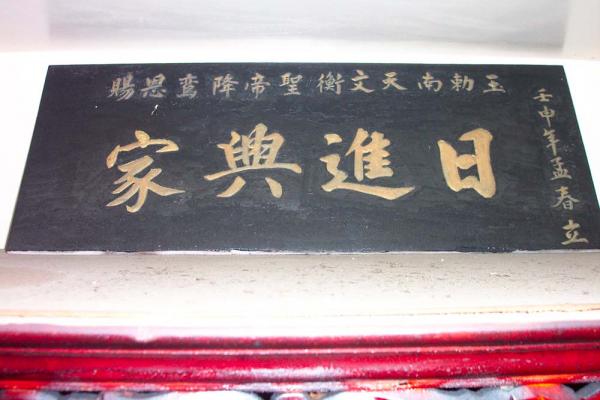 壬申年孟春立
玉勅南天文衡聖帝降鸞恩賜
日進興家